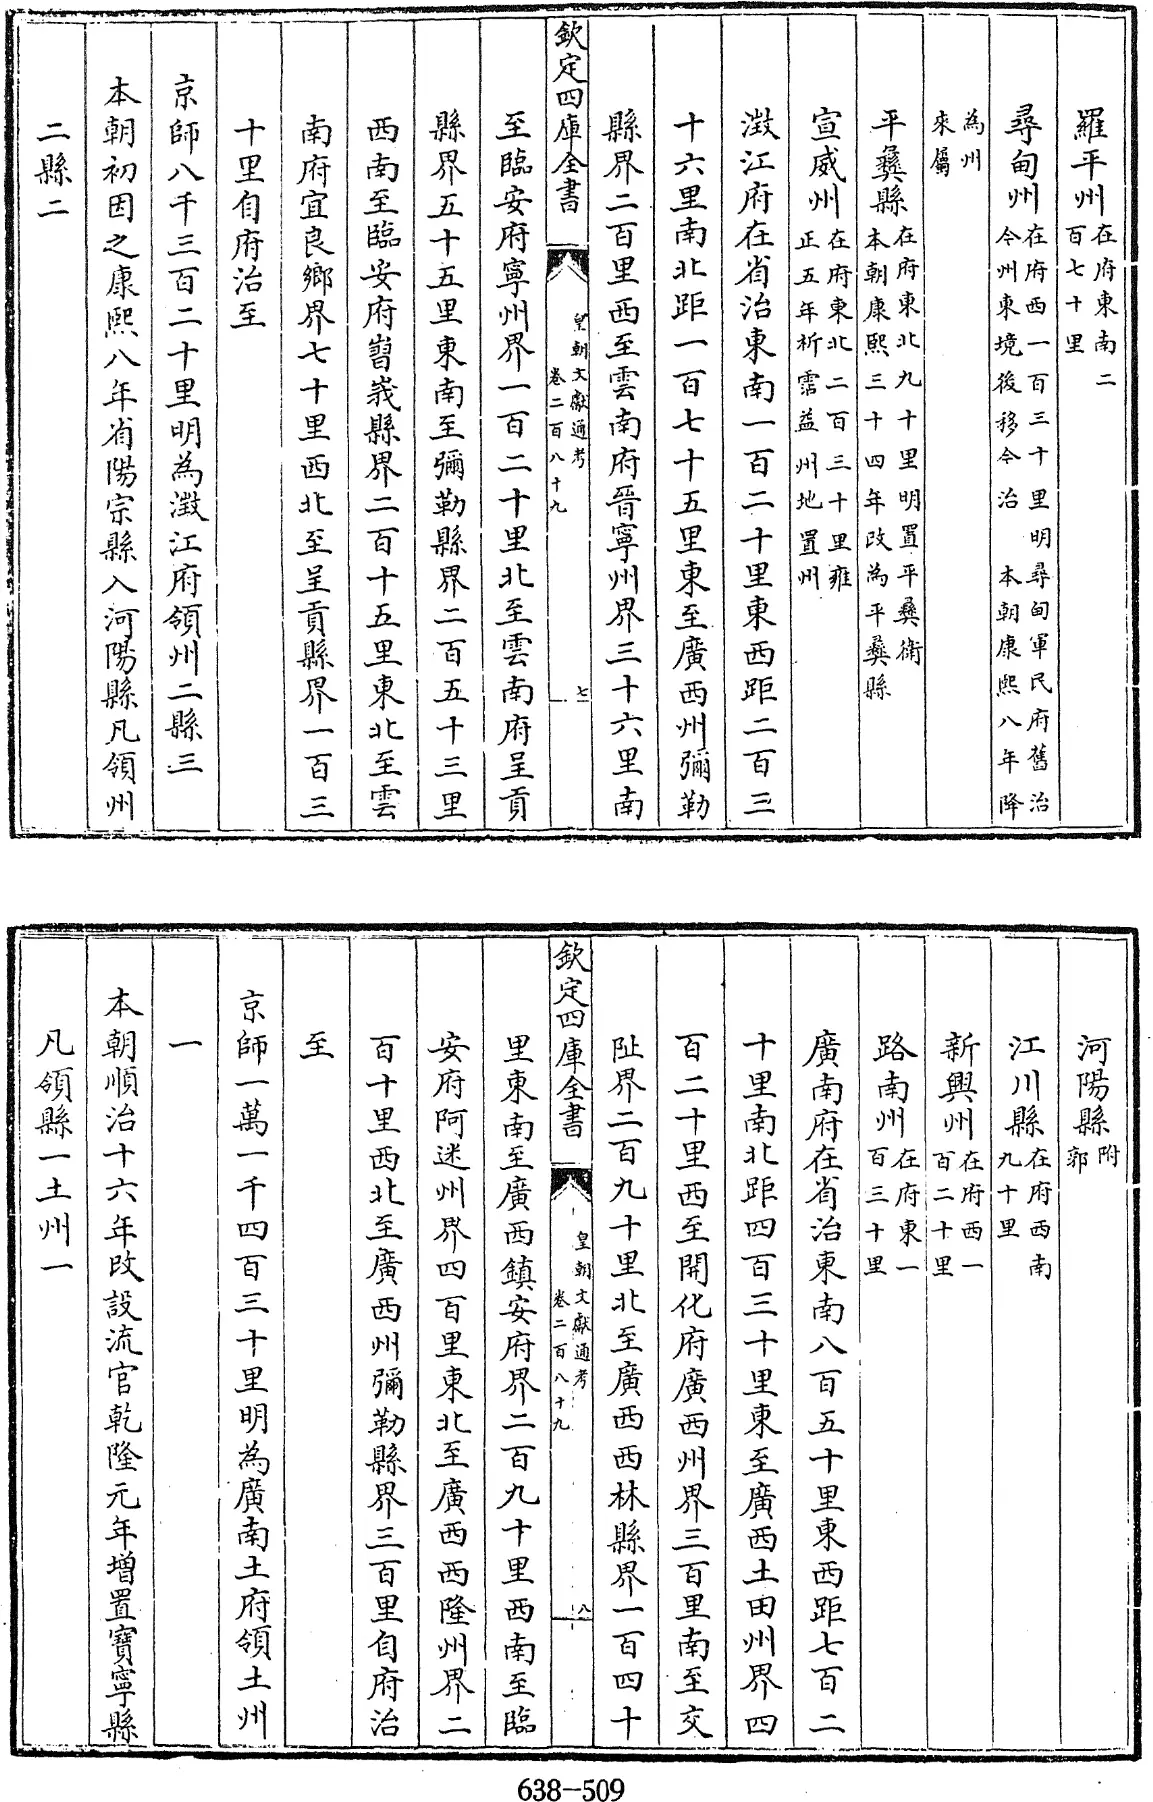 羅平州在府東南二
百七十里
尋甸州在府西一百三十里明尋甸軍民府舊治
今州東境後移今治　本朝康熙八年降
為州
來屬
平彝縣在府東北九十里明置平彝衛
本朝康熙三十四年改為平彝縣
宣威州在府東北二百三十里雍
正五年析霑益州地置州
澂江府在省治東南一百二十里東西距二百三
十六里南北距一百七十五里東至廣西州彌勒
縣界二百里西至雲南府晉寧州界三十六里南
欽定四庫全書
皇朝文獻通考
卷二百八十九
七
至臨安府寧州界一百二十里北至雲南府呈貢
縣界五十五里東南至彌勒縣界二百五十三里
西南至臨安府嶍峩縣界二百十五里東北至雲
南府宜良鄉界七十里西北至呈貢縣界一百三
十里自府治至
京師八千三百二十里明為澂江府領州二縣三
本朝初因之康熙八年省陽宗縣入河陽縣凡領州
二縣二
河陽縣附
郭
江川縣在府西南
九十里
新興州在府西一
百二十里
路南州在府東一
百三十里
廣南府在省治東南八百五十里東西距七百二
十里南北距四百三十里東至廣西土田州界四
百二十里西至開化府廣西州界三百里南至交
阯界二百九十里北至廣西西林縣界一百四十
欽定四庫全書
皇朝文獻通考
卷二百八十九
八
里東南至廣西鎮安府界二百九十里西南至臨
安府阿迷州界四百里東北至廣西西隆州界二
百十里西北至廣西州彌勒縣界三百里自府治
至
京師一萬一千四百三十里明為廣南土府領土州
一
本朝順治十六年改設流官乾隆元年增置寶寧縣
凡領縣一土州一
638-509